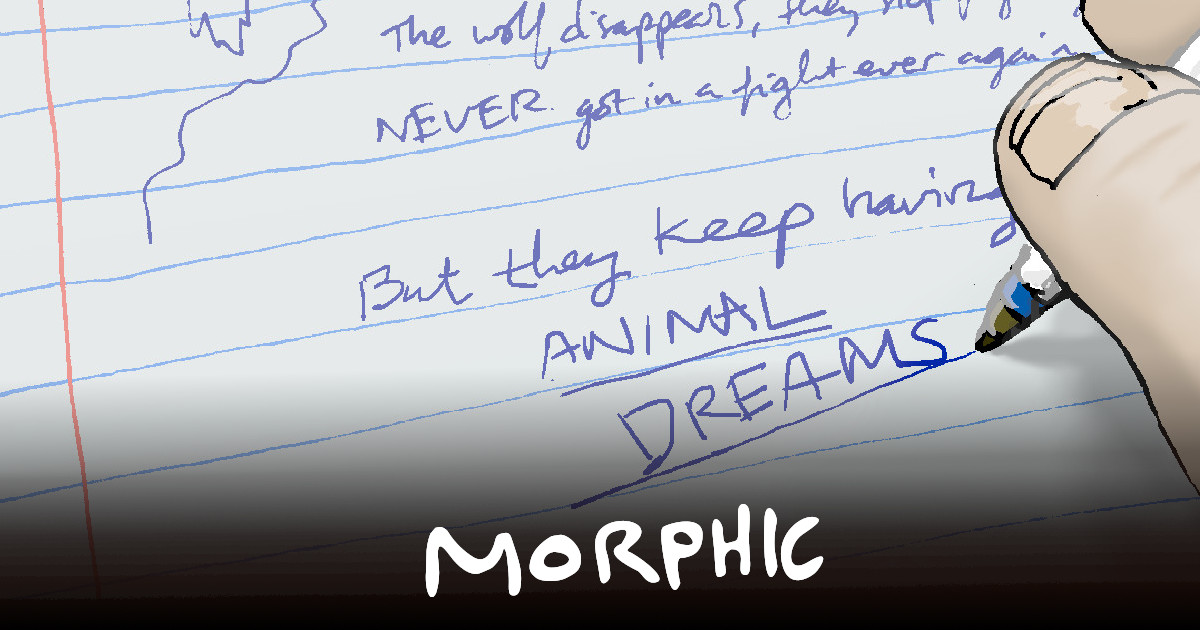 The wolf disappears, they stop
NEVER got in a fight ever again
But they keep having
ANIMAL
DREAMS
MORPHIC